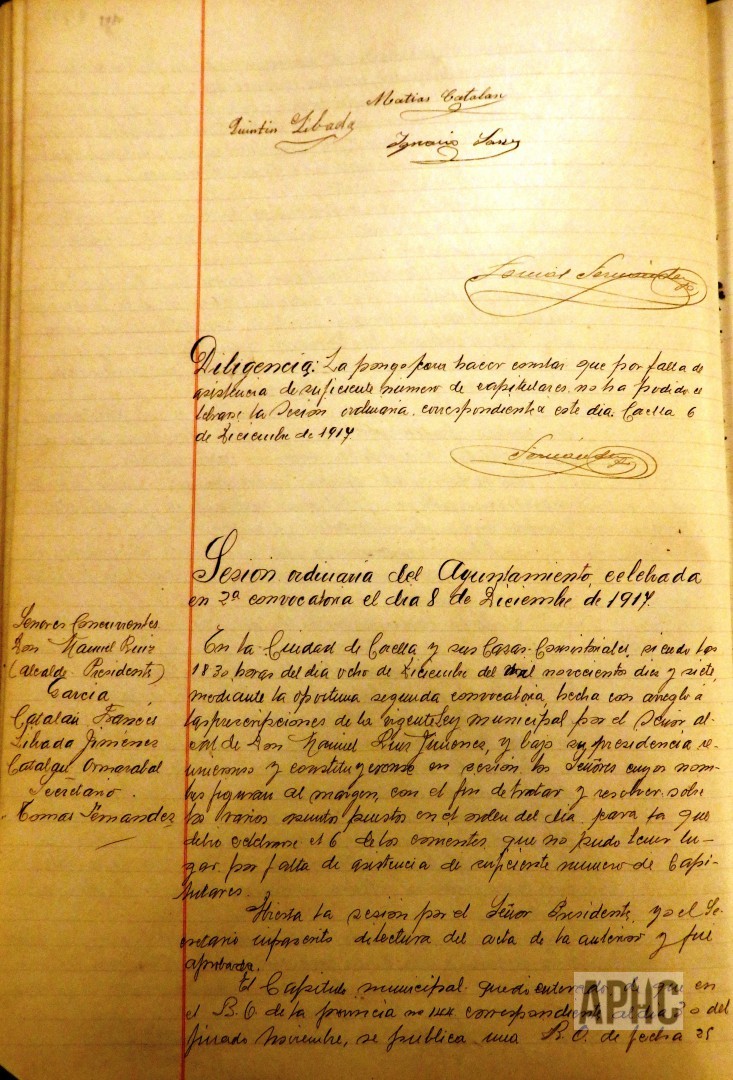 Matias Catalan
Quintin Libada
Ignacio
Diligencia: La pongo para hacer constar que por falta de
asistencia de suficiente número de capitulares no ha podido ce
lebrarse la Sesión ordinaria correspondiente a este dia. Coella 6
de Diciembre de 1917.
Fernández
Sesión ordinaria del Ayuntamiento, celebrada
en 2ª convocatoria el dia 8 de Diciembre de 1917.
Señores Concurrentes
Don Manuel Ruiz
(Alcalde-Presidente)
Garcia
Catalán Francés
Libada Jiménez
Catalán Ormazabal
Secretario
Tomas Fernandez
En la Ciudad de Coella y sus Casas-Consistoriales, siendo las
18'30 horas del dia ocho de Diciembre del mil novecientos diez y siete,
mediante la oportuna segunda convocatoria, hecha con arreglo a
las prescripciones de la vigente Ley municipal por el Señor al-
calde Don Manuel Ruiz Jimenez, y bajo su presidencia re-
unieronse y constituyeronse en sesión, los Señores cuyos nom-
bres figuran al margen, con el fin de tratar y resolver sobre
los varios asuntos puestos en el orden del dia para la que
debio celebrarse el 6 de los corrientes, que no pudo tener lu-
gar por falta de asistencia de suficiente numero de Capi-
tulares.
Abierta la sesion por el Señor Presidente, yo el Se-
cretario infrascrito di lectura del acta de la anterior y fué
aprobada.
El Capitulo municipal quedó enterado de que en
el B.O. de la provincia no 144 correspondiente al dia 30 del
finado Noviembre, se publica una R.O. de fecha 25
APHC